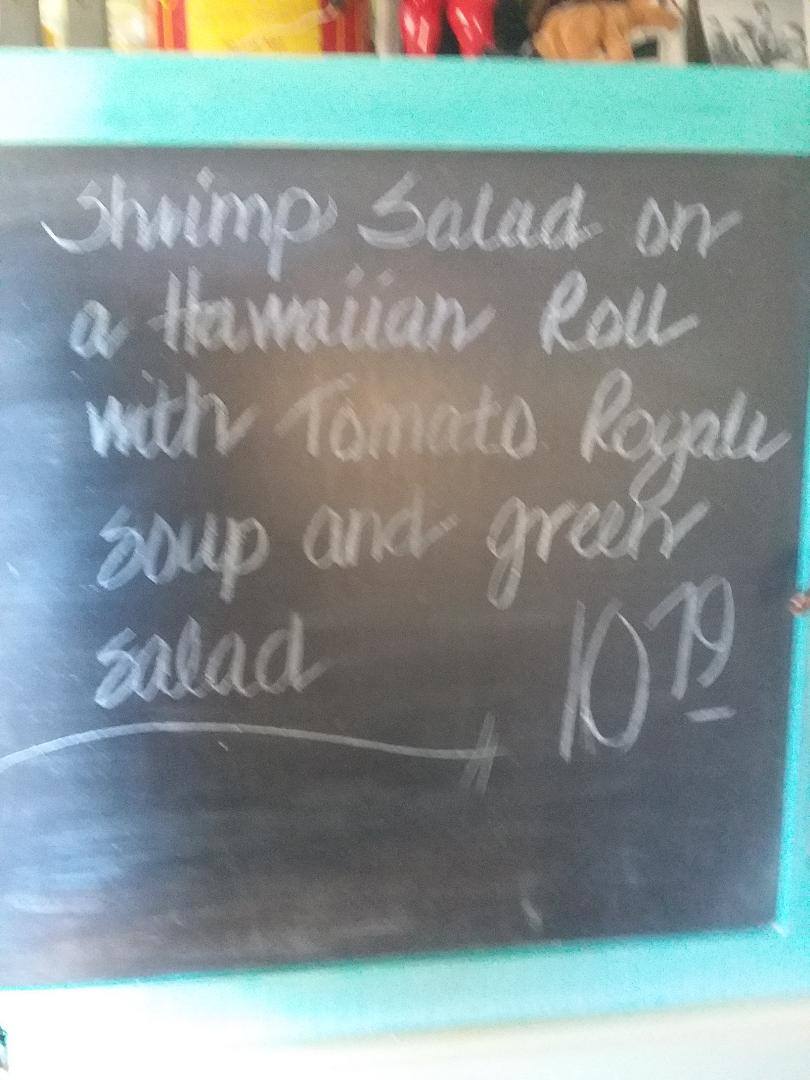 Shrimp Salad on
a Hawaiian Roll
with Tomato Royale
soup and green
salad
10 79